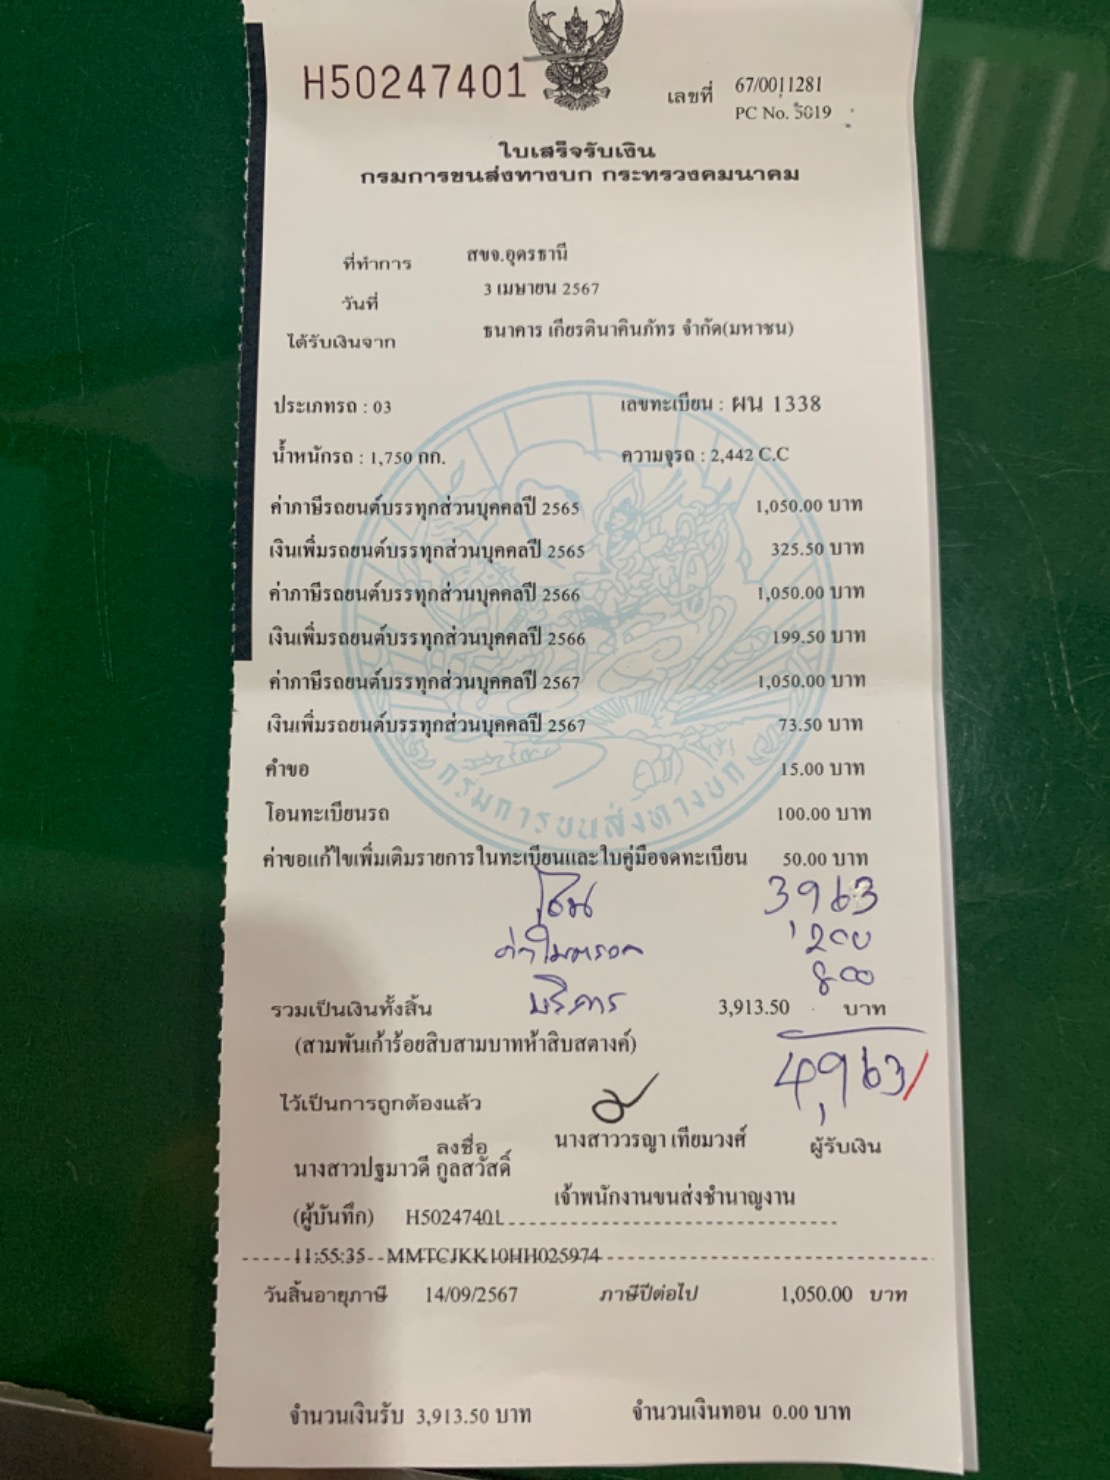 H50247401
เลขที่ 67/0011281
PC No. 5019
ใบเสร็จรับเงิน
กรมการขนส่งทางบก กระทรวงคมนาคม
ที่ทำการ สขจ.อุดรธานี
วันที่ 3 เมษายน 2567
ได้รับเงินจาก ธนาคาร เกียรตินาคินภัทร จำกัด(มหาชน)
ประเภทรถ : 03 เลขทะเบียน : ผน 1338
น้ำหนักรถ : 1,750 กก. ความจุรถ : 2,442 C.C
ค่าภาษีรถยนต์บรรทุกส่วนบุคคลปี 2565 1,050.00 บาท
เงินเพิ่มรถยนต์บรรทุกส่วนบุคคลปี 2565 325.50 บาท
ค่าภาษีรถยนต์บรรทุกส่วนบุคคลปี 2566 1,050.00 บาท
เงินเพิ่มรถยนต์บรรทุกส่วนบุคคลปี 2566 199.50 บาท
ค่าภาษีรถยนต์บรรทุกส่วนบุคคลปี 2567 1,050.00 บาท
เงินเพิ่มรถยนต์บรรทุกส่วนบุคคลปี 2567 73.50 บาท
คำขอ 15.00 บาท
โอนทะเบียนรถ 100.00 บาท
กรมการขนส่งทางบก
ค่าขอแก้ไขเพิ่มเติมรายการในทะเบียนและใบคู่มือจดทะเบียน 50.00 บาท
โอน 3,963
200
บริการ 800
รวมเป็นเงินทั้งสิ้น 3,913.50 บาท
(สามพันเก้าร้อยสิบสามบาทห้าสิบสตางค์)
4,963/
ไว้เป็นการถูกต้องแล้ว
ลงชื่อ นางสาววรญา เทียมวงศ์ ผู้รับเงิน
นางสาวปฐมาวดี กูลสวัสดิ์
เจ้าพนักงานขนส่งชำนาญงาน
(ผู้บันทึก) H50247401
11:55:35 MMTCJKK10HH025974
วันสิ้นอายุภาษี 14/09/2567 ภาษีปีต่อไป 1,050.00 บาท
จำนวนเงินรับ 3,913.50 บาท จำนวนเงินทอน 0.00 บาท